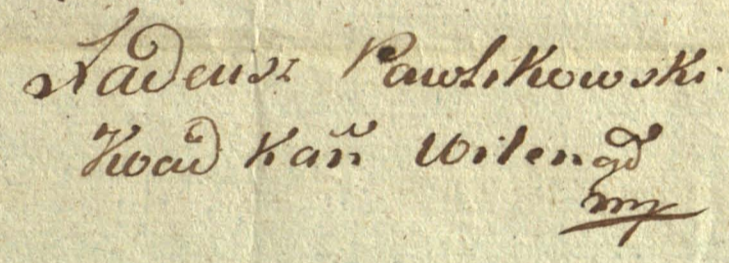 Tadeusz Pawlikowski
Kwad Kań Wileng
mp